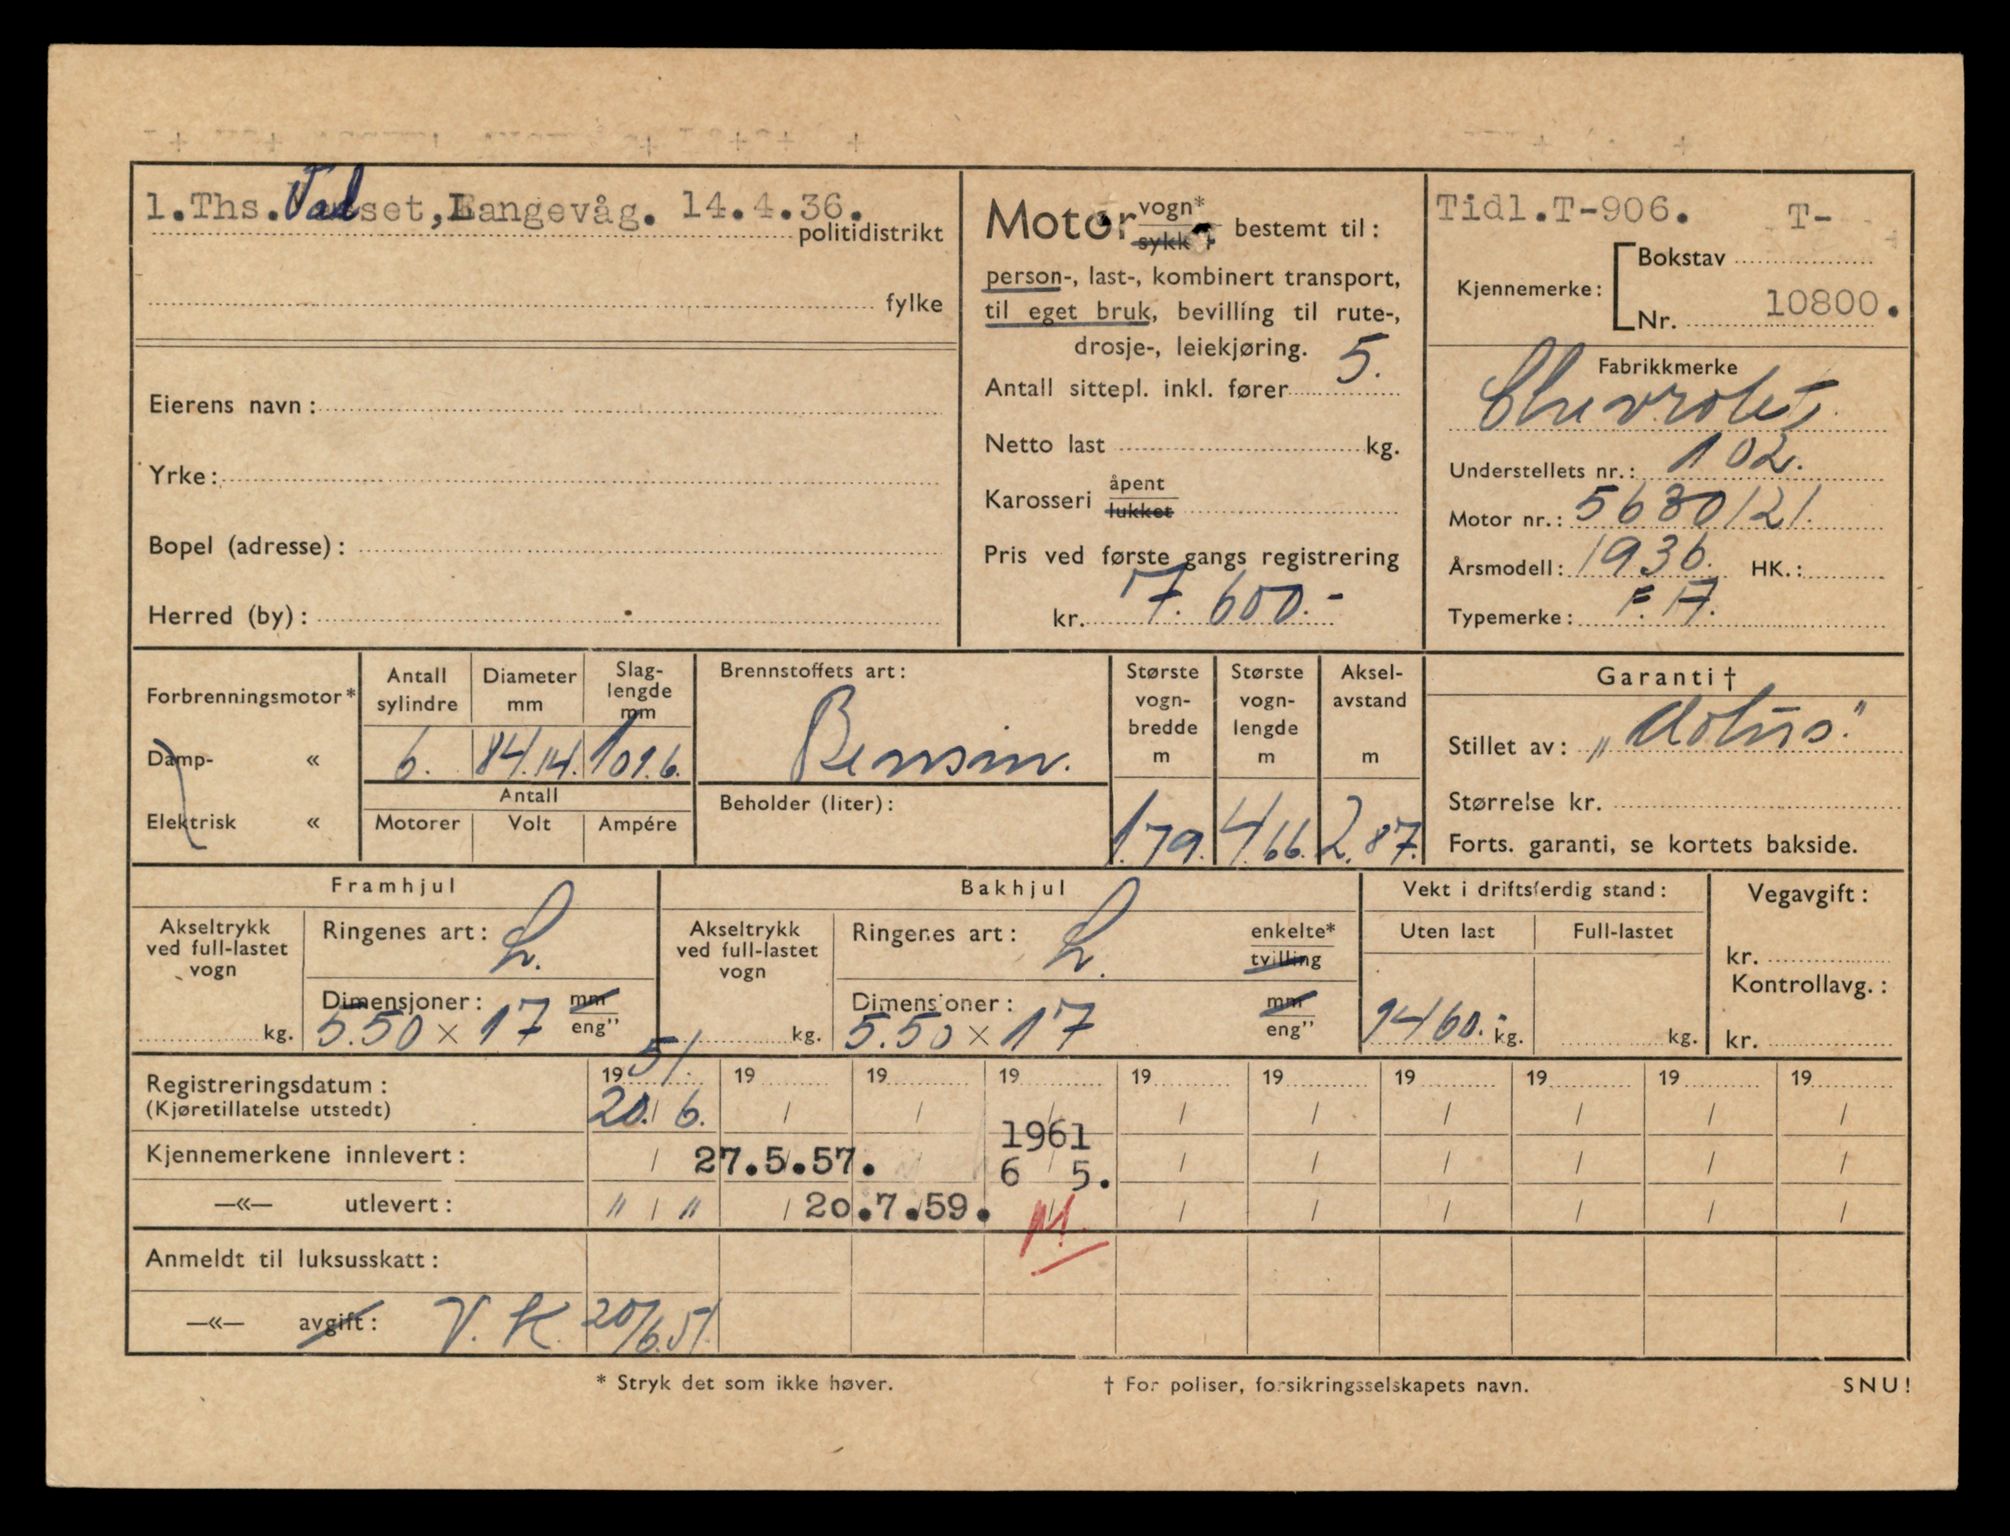 1.Ths. Valset, Langevåg. 14.4.36.
politidistrikt
fylke
Eierens navn:
Yrke:
Bopel (adresse):
Herred (by):
Motor vogn*
sykkel
bestemt til:
person-, last-, kombinert transport,
til eget bruk, bevilling til rute-,
drosje-, leiekjøring.
Antall sittepl. inkl. fører 5.
Netto last kg.
Karosseri åpent
lukket
Pris ved første gangs registrering
kr. 7.600.-
Tidl.T-906. T-
Kjennemerke: Bokstav
Nr. 10800.
Fabrikkmerke
Chevrolet.
Understellets nr.: 102.
Motor nr.: 5630121.
Årsmodell: 1936. HK.:
Typemerke: F.A.
Forbrenningsmotor*
Damp- «
Elektrisk «
Antall sylindre
Diameter mm
Slag-lengde mm
6. 84.14. 101.6.
Antall
Motorer Volt Ampére
Brennstoffets art:
Bensin.
Beholder (liter):
Største vogn-bredde m
Største vogn-lengde m
Aksel-avstand m
1.79. 4.66. 2.87.
Garanti †
Stillet av: "
Størrelse kr.
Forts. garanti, se kortets bakside.
Framhjul
Akseltrykk ved full-lastet vogn
kg.
Ringenes art: L.
Dimensjoner: mm
5.50 × 17 eng"
Bakhjul
Akseltrykk ved full-lastet vogn
kg.
Ringenes art: L.
enkelte*
tvilling
Dimensjoner: mm
5.50 × 17 eng"
Vekt i driftsferdig stand:
Uten last Full-lastet
1460.- kg. kg.
Vegavgift:
kr.
Kontrollavg.:
kr.
Registreringsdatum: 19 51. 19 19 19 19 19 19 19 19 19
(Kjøretillatelse utstedt) 20. / 6. / / / / / / / / /
1961
Kjennemerkene innlevert: / 27.5.57. 6 / 5. / / / / / /
—«— utlevert: " / " / 20.7.59. / / / / / /
Anmeldt til luksusskatt:
—«— avgift: V. K. 20/6.51.
* Stryk det som ikke høver.
† For poliser, forsikringsselskapets navn.
SNU!